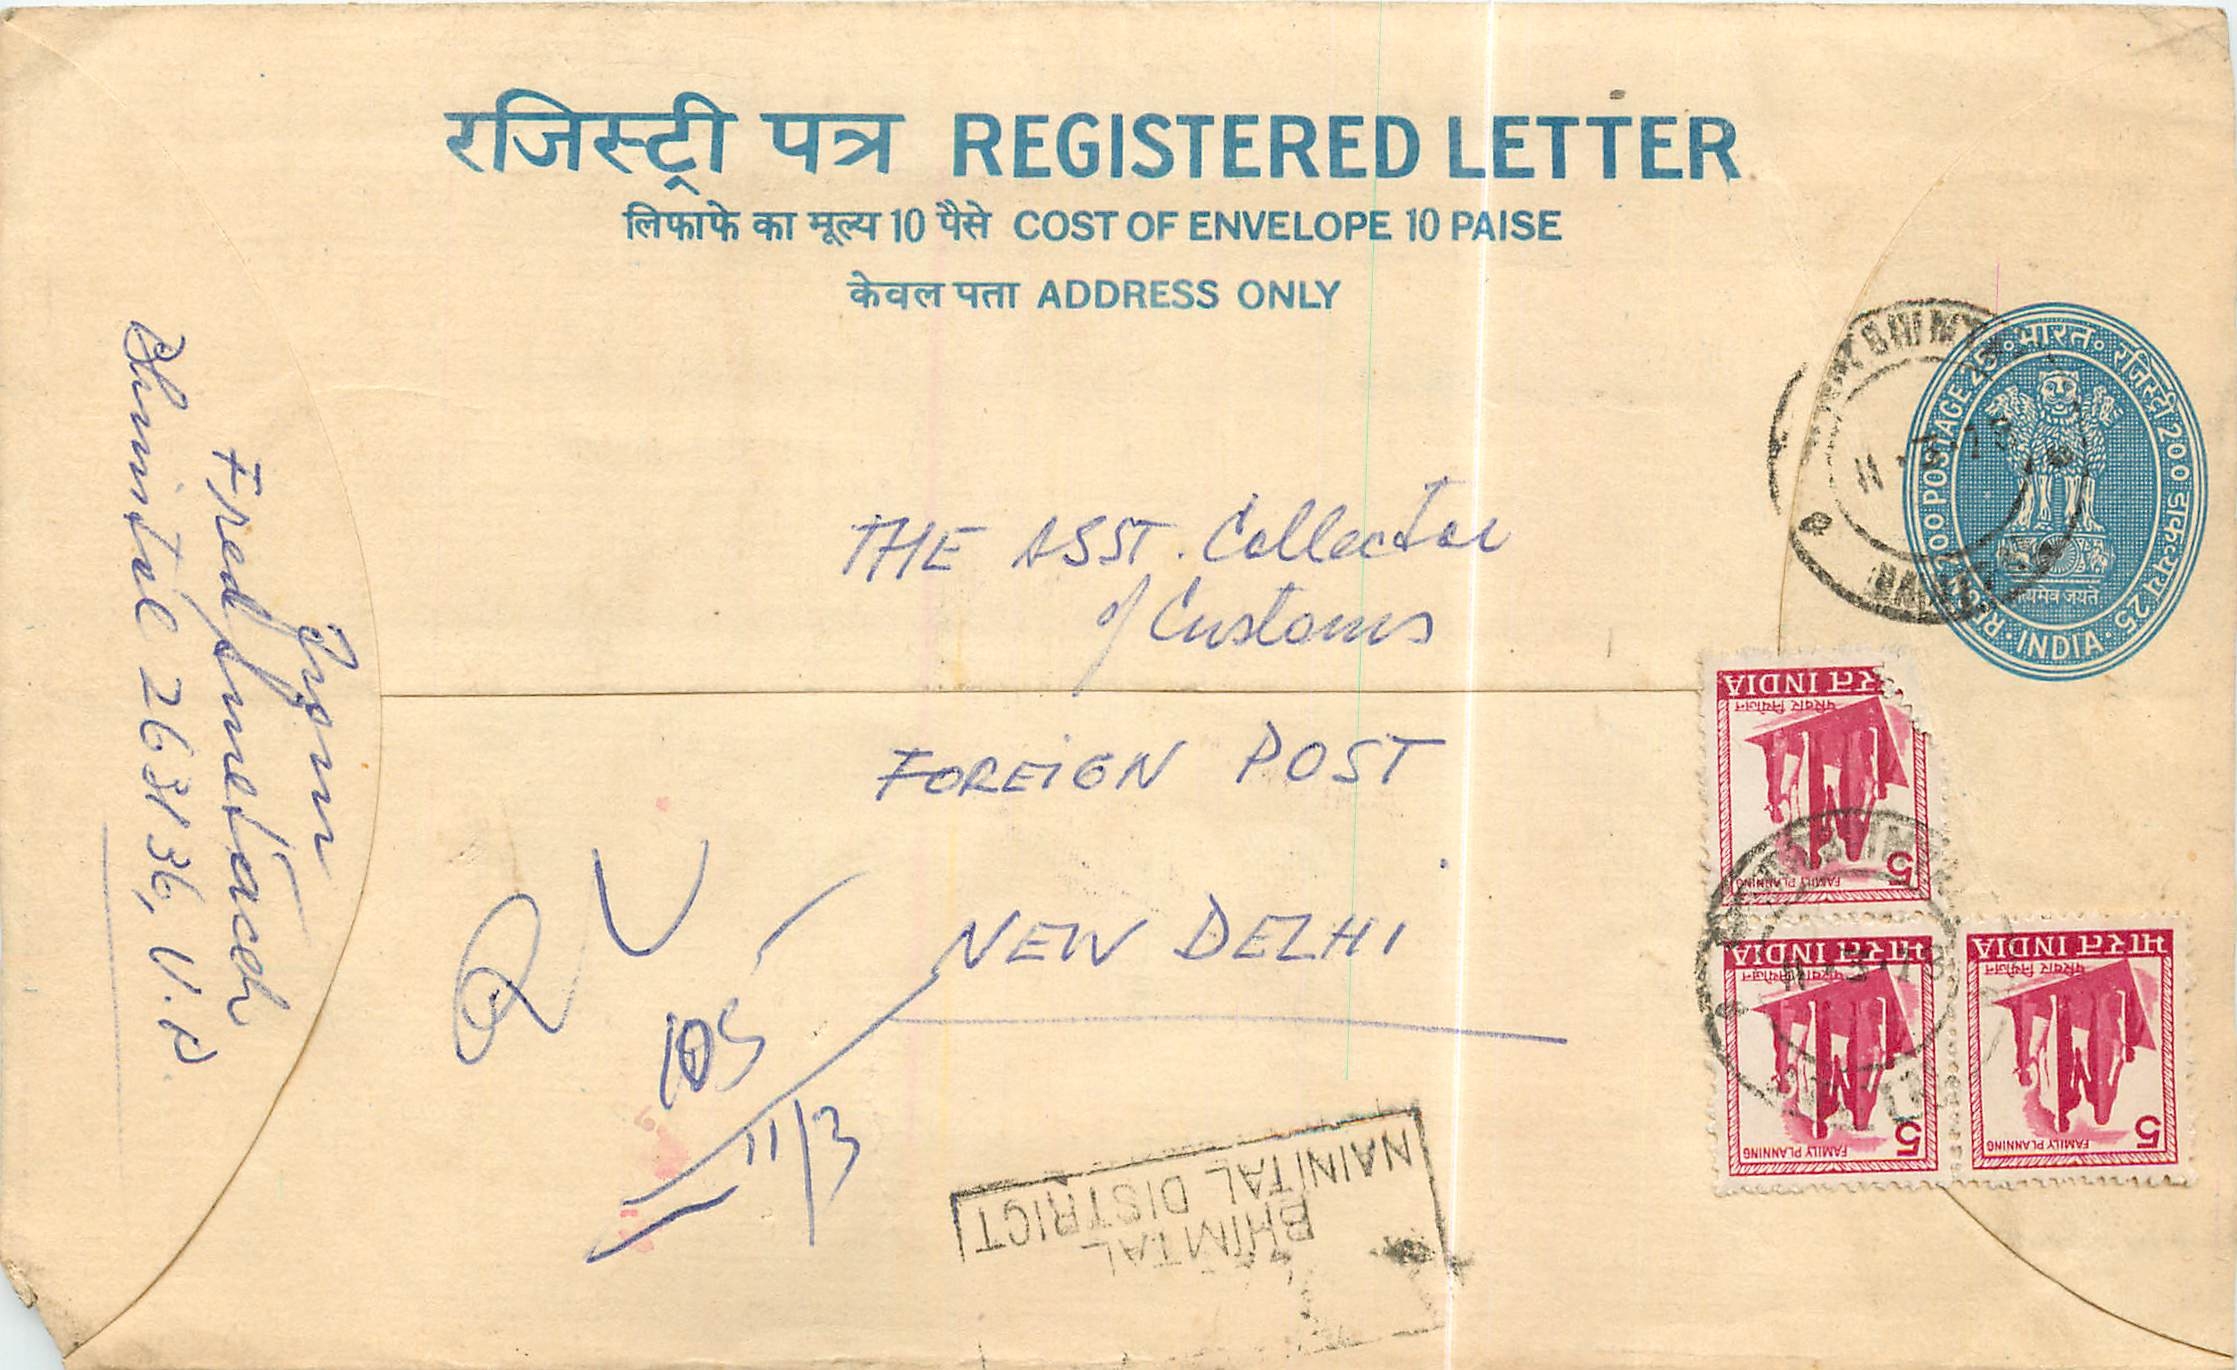 रजिस्ट्री पत्र REGISTERED LETTER
लिफाफे का मूल्य 10 पैसे COST OF ENVELOPE 10 PAISE
केवल पता ADDRESS ONLY
भारत रजिस्ट्री 200 डाकव्यय 25
200 POSTAGE 25
INDIA
11
THE ASST. Collector
of Customs
FOREIGN POST
NEW DELHI
From
Fred
Bhimtal 263136, U.P.
105
11/3
BHIMTAL
NAINITAL DISTRICT
भारत INDIA
परिवार नियोजन
FAMILY PLANNING
5
भारत INDIA
परिवार नियोजन
FAMILY PLANNING
5
भारत INDIA
परिवार नियोजन
FAMILY PLANNING
5
11-3-78